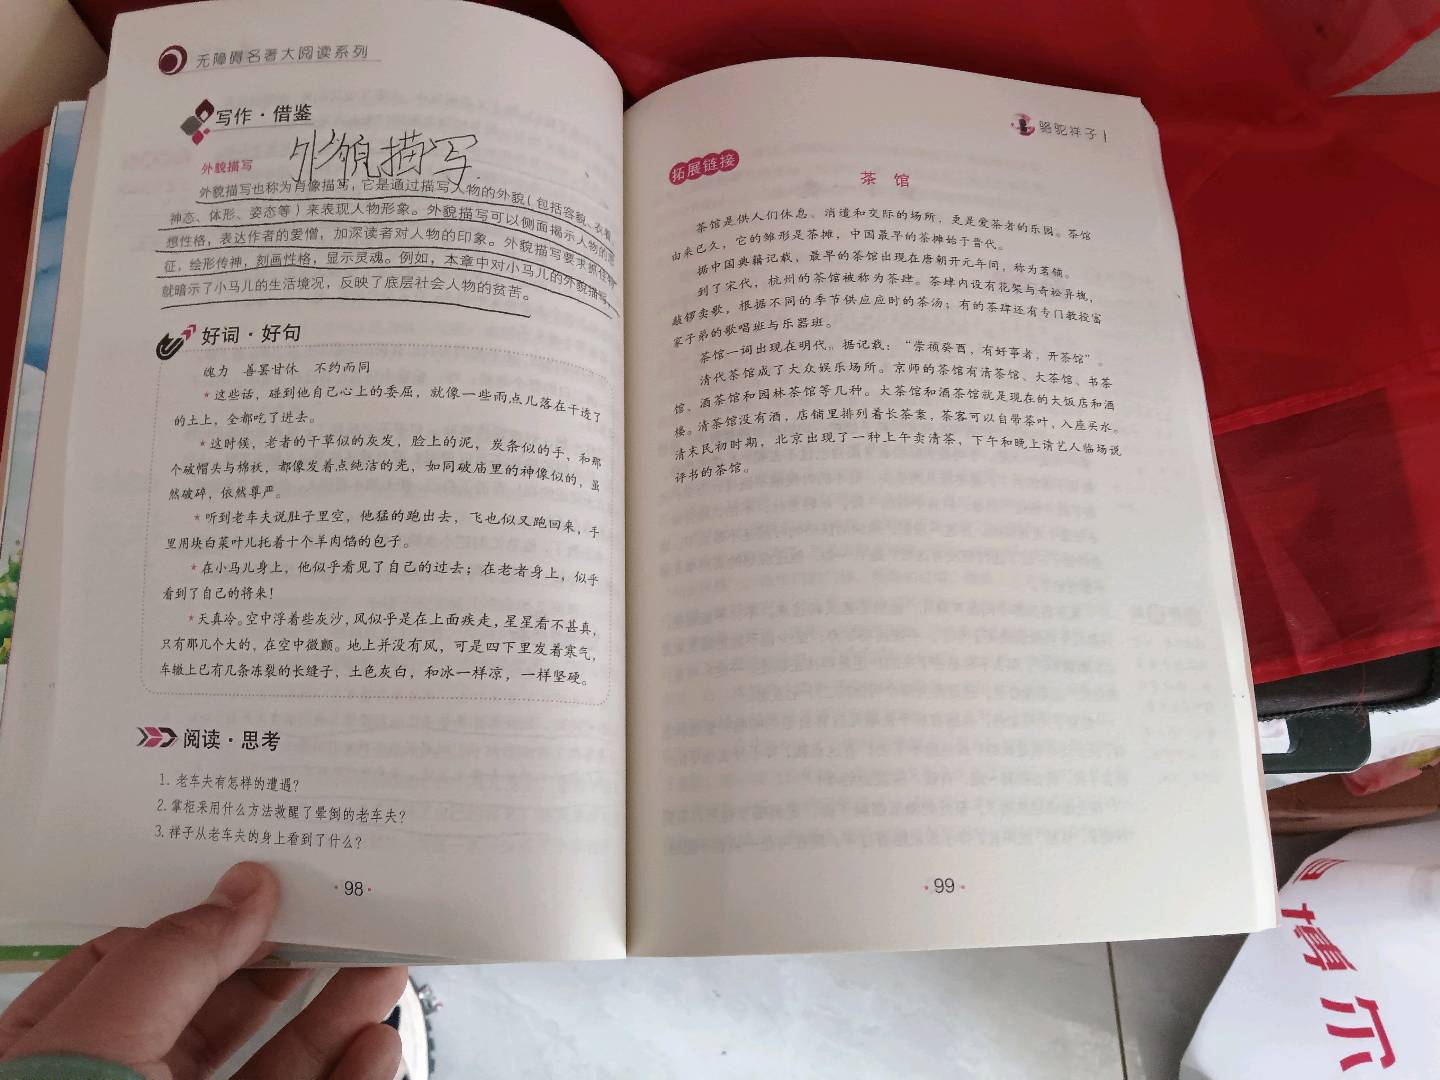 无障碍名著大阅读系列
写作·借鉴
外貌描写
外貌描写
外貌描写也称为肖像描写，它是通过描写人物的外貌（包括容貌、衣着、
神态、体形、姿态等）来表现人物形象。外貌描写可以侧面揭示人物的思
想性格，表达作者的爱憎，加深读者对人物的印象。外貌描写要求抓住特
征，绘形传神，刻画性格，显示灵魂。例如，本章中对小马儿的外貌描写，
就暗示了小马儿的生活境况，反映了底层社会人物的贫苦。
好词·好句
魄力 善罢甘休 不约而同
*这些话，碰到他自己心上的委屈，就像一些雨点儿落在干透了
的土上，全都吃了进去。
*这时候，老者的干草似的灰发，脸上的泥，炭条似的手，和那
个破帽头与棉袄，都像发着点纯洁的光，如同破庙里的神像似的，虽
然破碎，依然尊严。
*听到老车夫说肚子里空，他猛的跑出去，飞也似又跑回来，手
里用块白菜叶儿托着十个羊肉馅的包子。
*在小马儿身上，他似乎看见了自己的过去；在老者身上，似乎
看到了自己的将来！
*天真冷。空中浮着些灰沙，风似乎是在上面疾走，星星看不甚真，
只有那几个大的，在空中微颤。地上并没有风，可是四下里发着寒气，
车辙上已有几条冻裂的长缝子，土色灰白，和冰一样凉，一样坚硬。
阅读·思考
1. 老车夫有怎样的遭遇？
2. 掌柜采用什么方法救醒了晕倒的老车夫？
3. 祥子从老车夫的身上看到了什么？
·98·
骆驼祥子
拓展链接
茶 馆
茶馆是供人们休息、消遣和交际的场所，更是爱茶者的乐园。茶馆
由来已久，它的雏形是茶摊，中国最早的茶摊始于晋代。
据中国典籍记载，最早的茶馆出现在唐朝开元年间，称为茗铺。
到了宋代，杭州的茶馆被称为茶肆。茶肆内设有花架与奇松异桧，
敲锣卖歌，根据不同的季节供应应时的茶汤；有的茶肆还有专门教授富
家子弟的歌唱班与乐器班。
茶馆一词出现在明代。据记载：“崇祯癸酉，有好事者，开茶馆”。
清代茶馆成了大众娱乐场所。京师的茶馆有清茶馆、大茶馆、书茶
馆、酒茶馆和园林茶馆等几种。大茶馆和酒茶馆就是现在的大饭店和酒
楼。清茶馆没有酒，店铺里排列着长茶案，茶客可以自带茶叶，入座买水。
清末民初时期，北京出现了一种上午卖清茶，下午和晚上请艺人临场说
评书的茶馆。
·99·
博